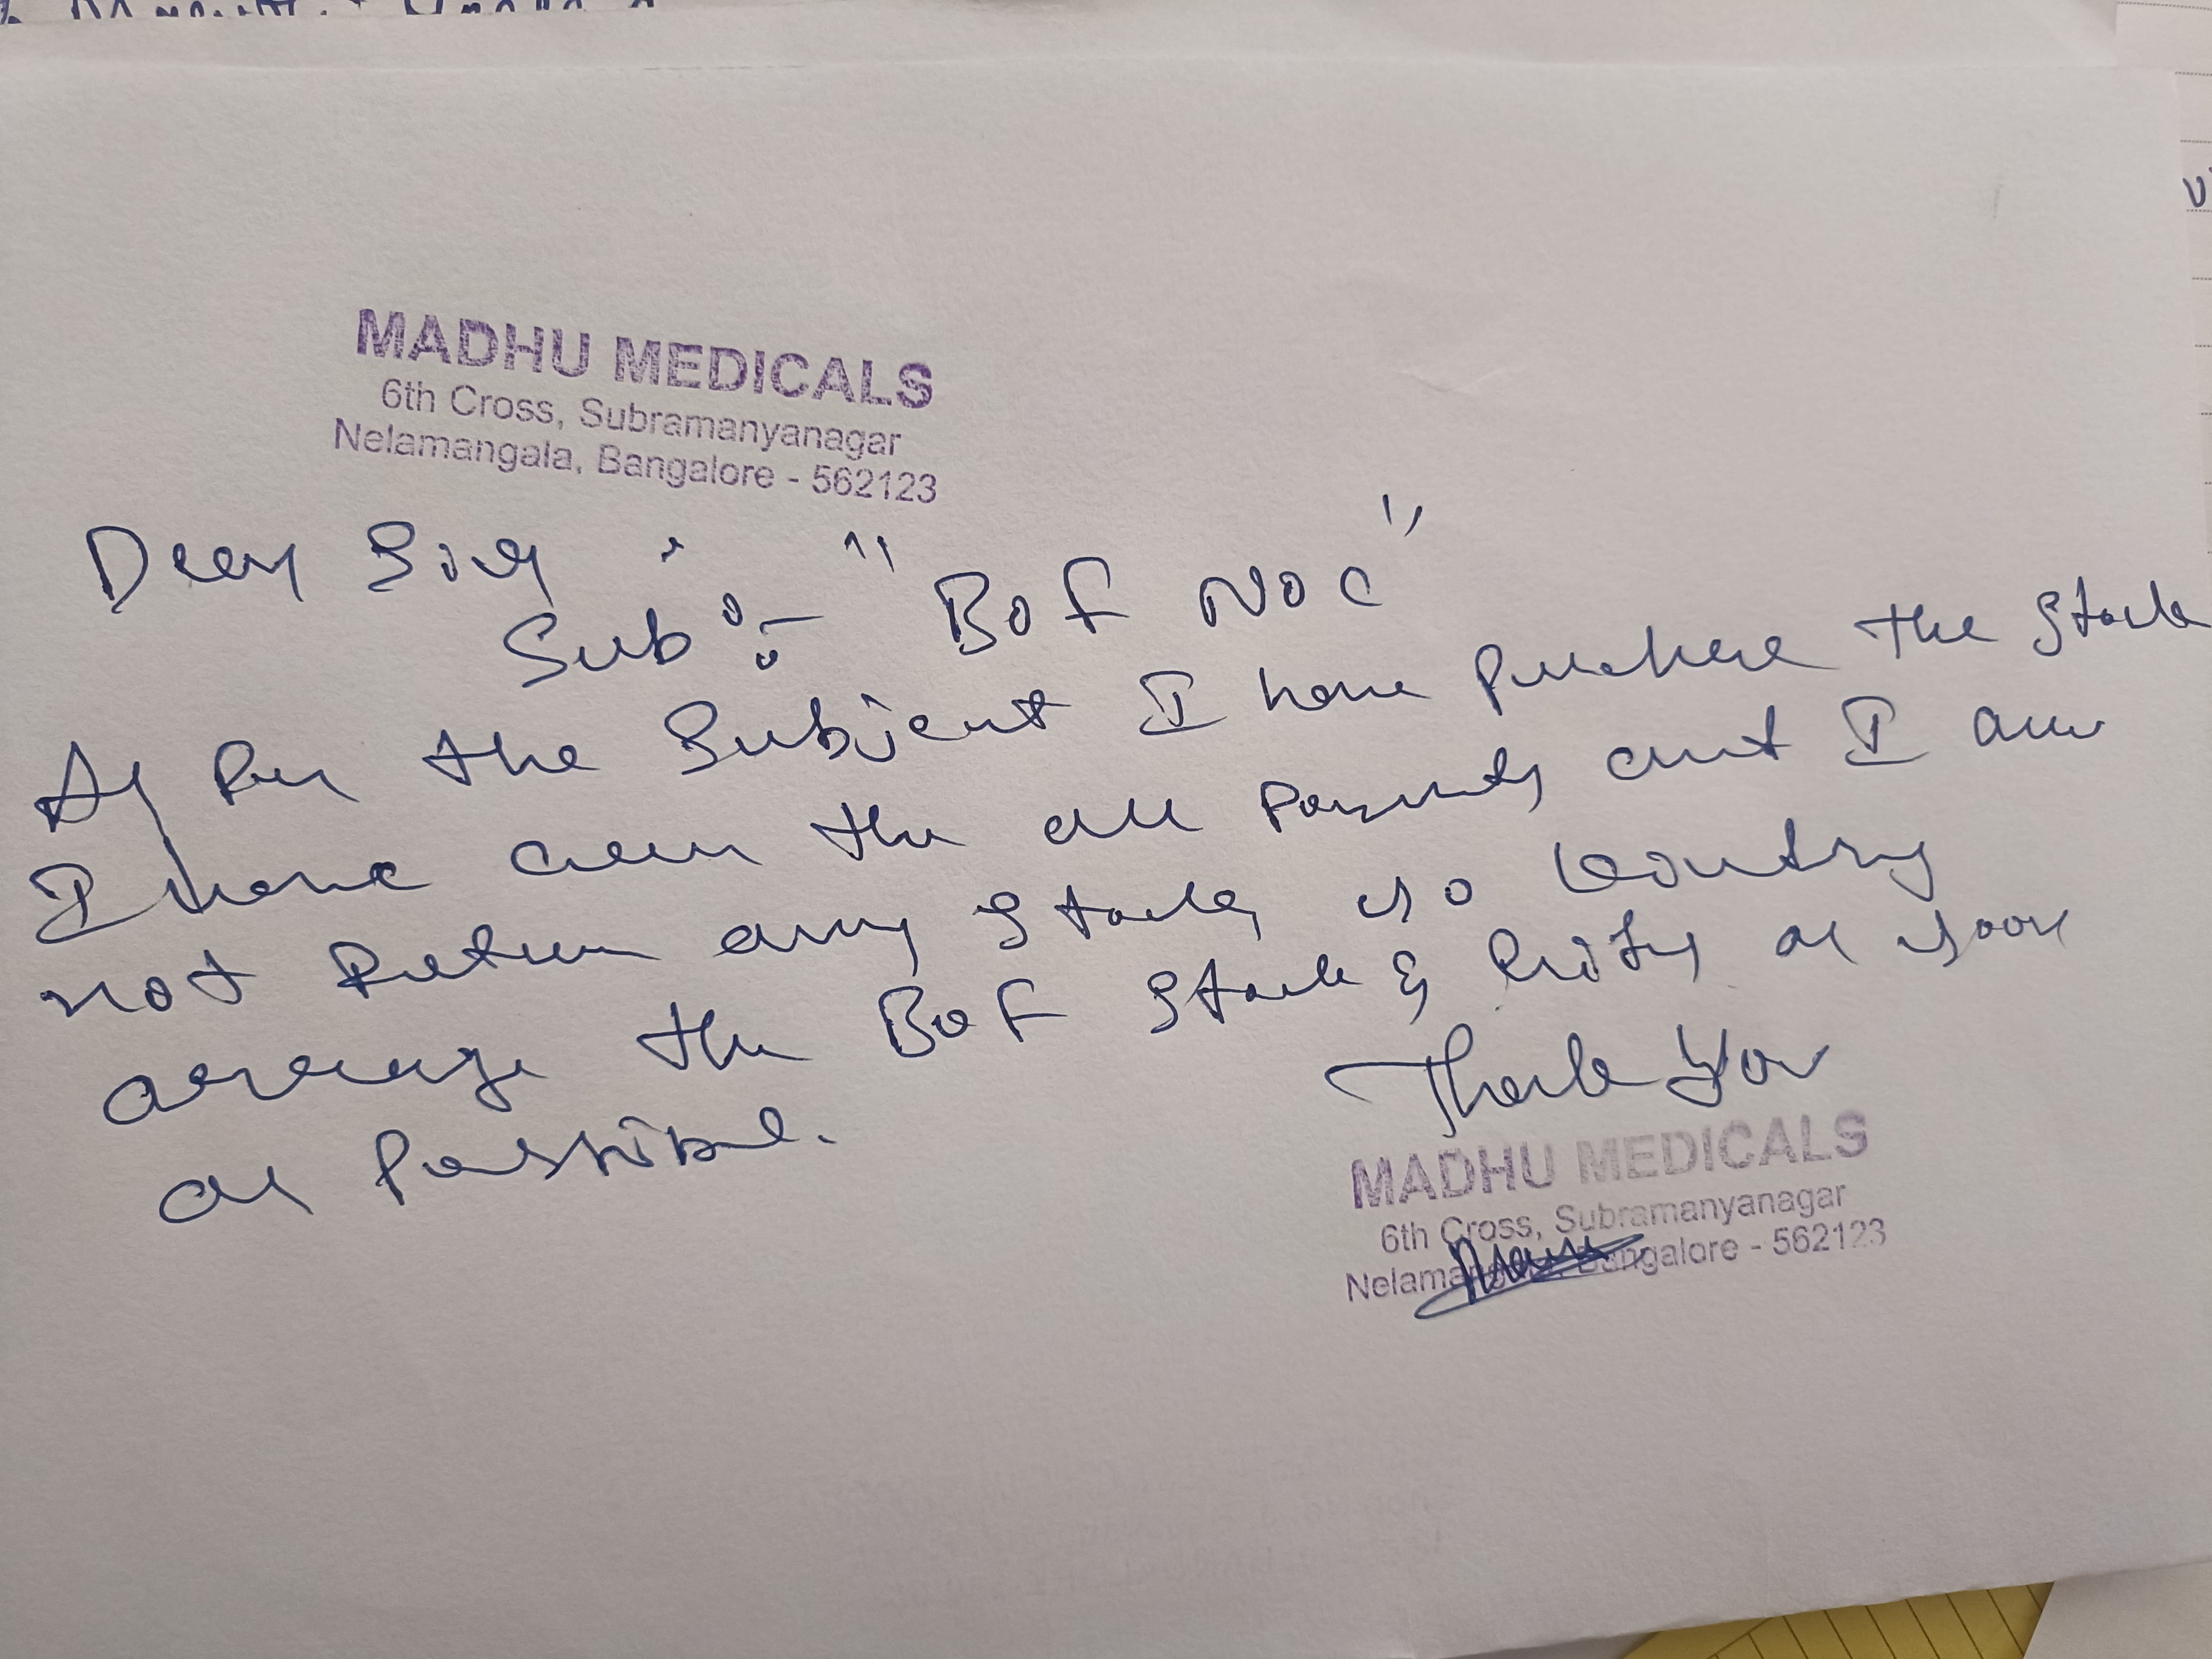 MADHU MEDICALS
6th Cross, Subramanyanagar
Nelamangala, Bangalore - 562123
Dear Sir,
Sub :- "BOF NOC"
As Per the Subject I have purchase the Stock
I have the all Payments and I am
not Return any Stock, so
arrange the BOF Stock & as soon
as Possible.
Thank You
MADHU MEDICALS
6th Cross, Subramanyanagar
Nelamangala, Bangalore - 562123